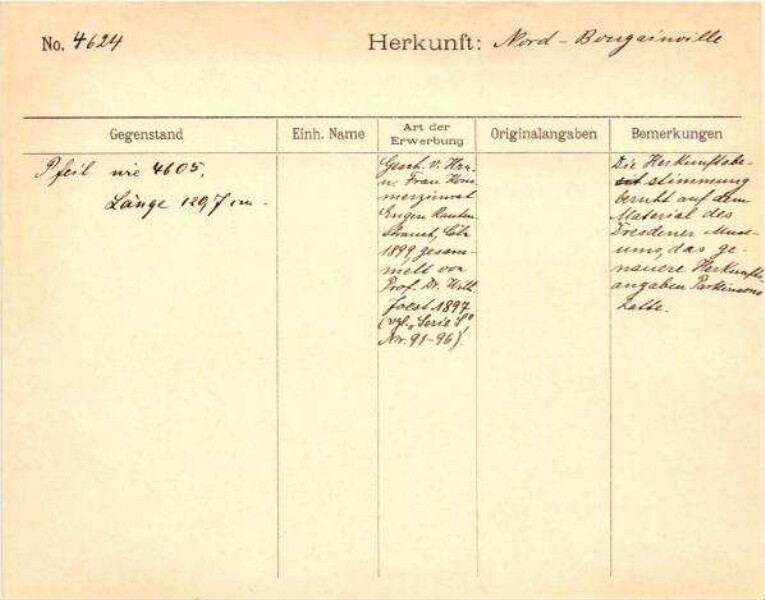 No. 4624
Herkunft: Nord-Bougainville
Gegenstand
Einh. Name
Art der Erwerbung
Originalangaben
Bemerkungen
Pfeil wie 4605.
Länge 129,7 cm.
Gesch. v. Hrn.
u. Frau Kom-
merzienrat
Eugen Rauten-
strauch, Cöln
1899, gesam-
melt von
Prof. Dr. Wilh.
Joest 1897
(vgl. „Serie S“
Nr. 91-96).
Die Herkunftsbe-
stimmung
beruht auf dem
Material des
Dresdener Muse-
ums, das ge-
nauere Herkunfts-
angaben Parkinsons
hatte.